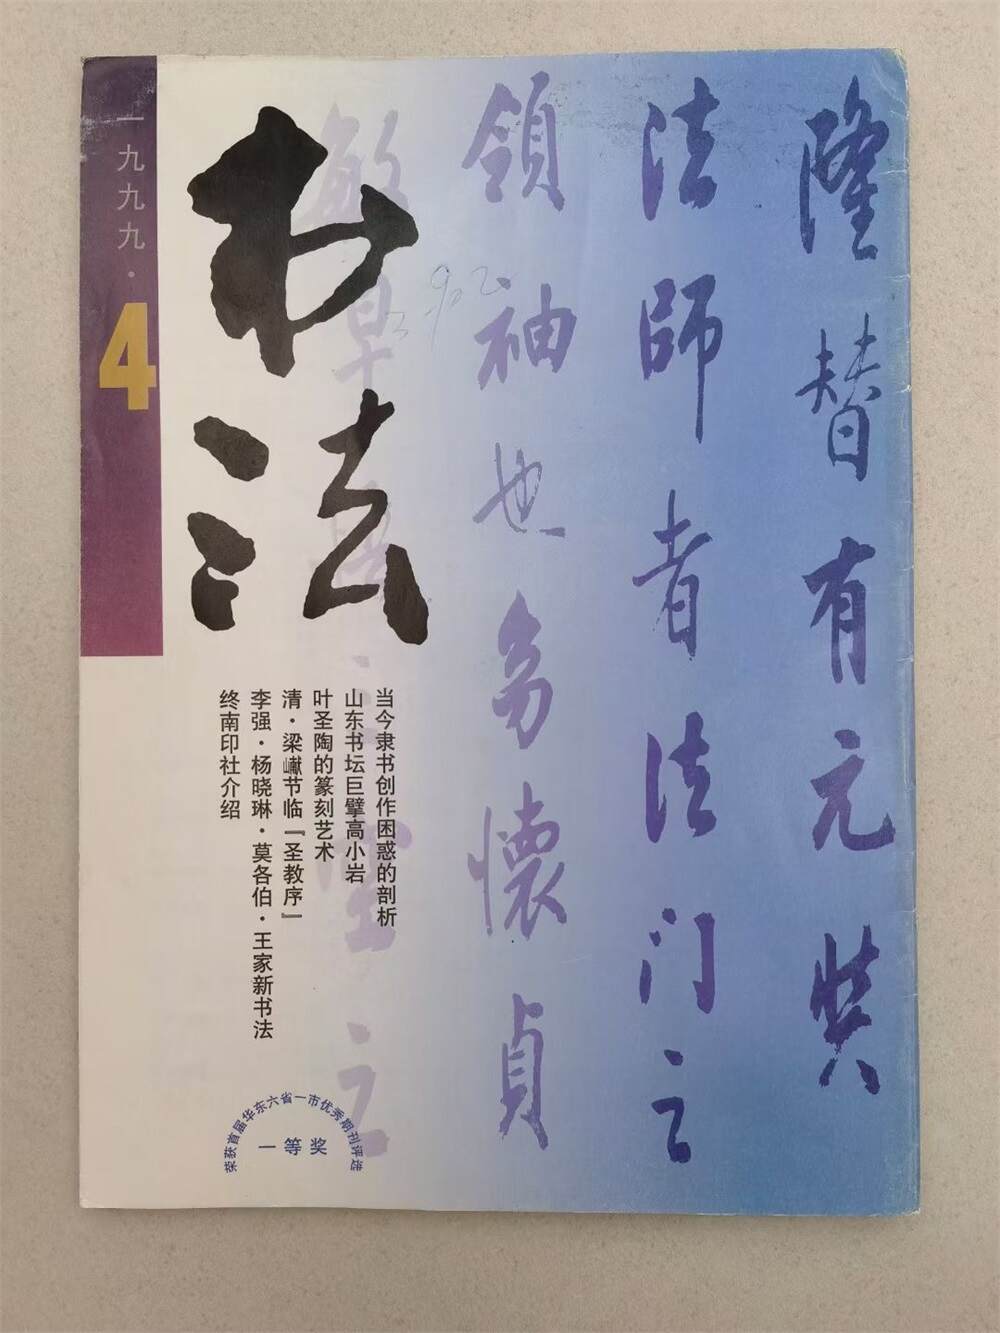 一九九九·4
书法
隆替有元奘
法師者法门之
領袖也幼懷貞
敏早
之
当今隶书创作困惑的剖析
山东书坛巨擘高小岩
叶圣陶的篆刻艺术
清·梁巘节临『圣教序』
李强·杨晓琳·莫各伯·王家新书法
终南印社介绍
荣获首届华东六省一市优秀期刊评选
一等奖